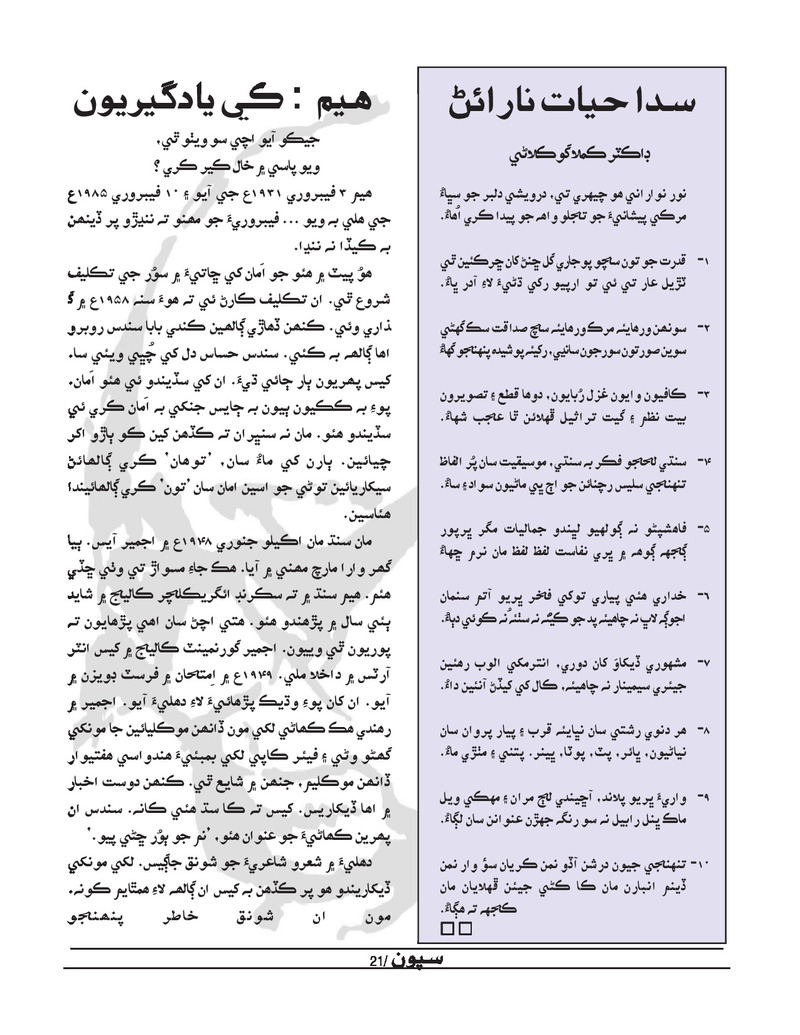 سدا حيات نارائڻ
ڊاڪٽر ڪملا گوڪلاڻي
نور نوراني هو چهري تي، درويشي دلبر جو سڀاءُ
مرڪي پيشانيءَ جو تجلو واهه جو پيدا ڪري اُهاءُ.
۱- قدرت جو تون سچو پوڄاري گل ڇنڻ کان ڇرڪئين ٿي
ٽڙيل عار تي ئي تو ارپيو رکي ڌڻيءَ لاءِ آدر ڀاءُ.
۲- سونهن ورهايئه مرڪ ورهايئه سچ صداقت سڪ گهڻي
سوين صورتون سورجون سانيي، رکيئه پوشيده پنهنجو گهاءُ
۳- ڪافيون وايون غزل رُبايون، دوها قطع ۽ تصويرون
بيت نظم ۽ گيت تراٽيل ڦهلائن ٿا عجب شهاءُ.
۴- سنڌي لهجو فڪر به سنڌي، موسيقيت سان پُر الفاظ
تنهنجي سليس رچنائن جو اڄ پي ماڻيون سواد ۽ ساءُ.
۵- فاهشپڻو نه ڳولهيو لڀندو جماليات مگر ڀرپور
ڳجهه ڳوهه ۾ ڀري نفاست لفظ لفظ مان نرم ڇهاءُ
۶- خداري هئي پياري توکي فخر ڀريو آتم سنمان
اجوڳه لاڀ نه چاهيئه پد جو ڪيئه نه سٺئه نُه ڪوئي دٻاءُ.
۷- مشهوري ڏيکاءَ کان دوري، انترمکي الوب رهئين
جيئري سيمينار نه چاهيئه، ڪال کي ڪيڏڻ آئين داءُ.
۸- هر دنوي رشتي سان نڀايئه قرب ۽ پيار پروان سان
نياڻيون، ڀائر، پٽ، پوٽا، ڀينر، پتني ۽ مٺڙي ماءُ.
۹- واريءَ ڀريو پلاند، آڇيندي لڄ مران ۽ مهڪي ويل
ماڪ ڀنل رابيل نه سو رنگه جهڙن عنوانن سان لڳاءُ.
۱۰- تنهنجي جيون درشن آڏو نمن ڪريان سؤ وار نمن
ڏينم انبارن مان ڪا ڪڻي جيئن ڦهلايان مان
ڪجهه ته هڳاءُ.
هيم : ڪي يادگيريون
جيڪو آيو اچي سو ويٺو ٿي،
ويو پاسي ۾ خال ڪير ڪري ؟
هيم ۳ فيبروري ۱۹۳۱ع جي آيو ۽ ۱۰ فيبروري ۱۹۸۵ع
جي هلي به ويو ... فيبروريءَ جو مهنو ته ننڍڙو پر ڏينهن
به ڪيڏا نه ننڍا.
هوُ پيٽ ۾ هئو جو اَمان کي ڇاتيءَ ۾ سوُر جي تڪليف
شروع ٿي. ان تڪليف ڪارڻ ئي ته هوءَ سنه ۱۹۵۸ع ۾ گ
ذاري وئي. ڪنهن ڏهاڙي ڳالهين ڪندي بابا سندس روبرو
اها ڳالهه به ڪئي. سندس حساس دل کي چُڀي ويئي سا.
کيس پهريون ٻار ڄائي ڌيءَ. ان کي سڏيندو ئي هئو اَمان.
پوءِ به ڪڪيون ٻيون به ڄايس جنکي به اَمان ڪري ئي
سڏيندو هئو. مان نه سنڀران ته ڪڏهن کين ڪو ٻاڙو اکر
چيائين. ٻارن کي ماءُ سان، ’توهان‘ ڪري ڳالهائڻ
سيکاريائين توڻي جو اسين امان سان ’تون‘ ڪري ڳالهائيندا
هئاسين.
مان سنڌ مان اڪيلو جنوري ۱۹۴۸ع ۾ اجمير آيس. ٻيا
گهر وارا مارچ مهني ۾ آيا. هڪ جاءِ مسواڙ تي وٺي ڇڏي
هئم. هيم سنڌ ۾ ته سڪرنڊ انگريڪلچر ڪاليج ۾ شايد
ٻئي سال ۾ پڙهندو هئو. هتي اچڻ سان اهي پڙهايون ته
پوريون ٿي وييون. اجمير گورنمينٽ ڪاليج ۾ کيس انٽر
آرٽس ۾ داخلا ملي. ۱۹۴۹ع ۾ اِمتحان ۾ فرسٽ ڊويزن ۾
آيو. ان کان پوءِ وڌيڪ پڙهائيءَ لاءِ دهليءَ آيو. اجمير ۾
رهندي هڪ ڪهاڻي لکي مون ڏانهن موڪليائين جا مونکي
گهڻو وڻي ۽ فيئر ڪاپي لکي بمبئيءَ هندواسي هفتيوار
ڏانهن موڪليم، جنهن ۾ شايع ٿي. ڪنهن دوست اخبار
۾ اها ڏيکاريس. کيس ته ڪا سڌ هئي ڪانه. سندس ان
پهرين ڪهاڻيءَ جو عنوان هئو، ’نم جو ٻوُر ڇڻي پيو.‘
دهليءَ ۾ شعرو شاعريءَ جو شونق جاڳيس. لکي مونکي
ڏيکاريندو هو پر ڪڏهن به کيس ان ڳالهه لاءِ همٿايم ڪونه.
مون ان شونق خاطر پنهنجو
سپون /21